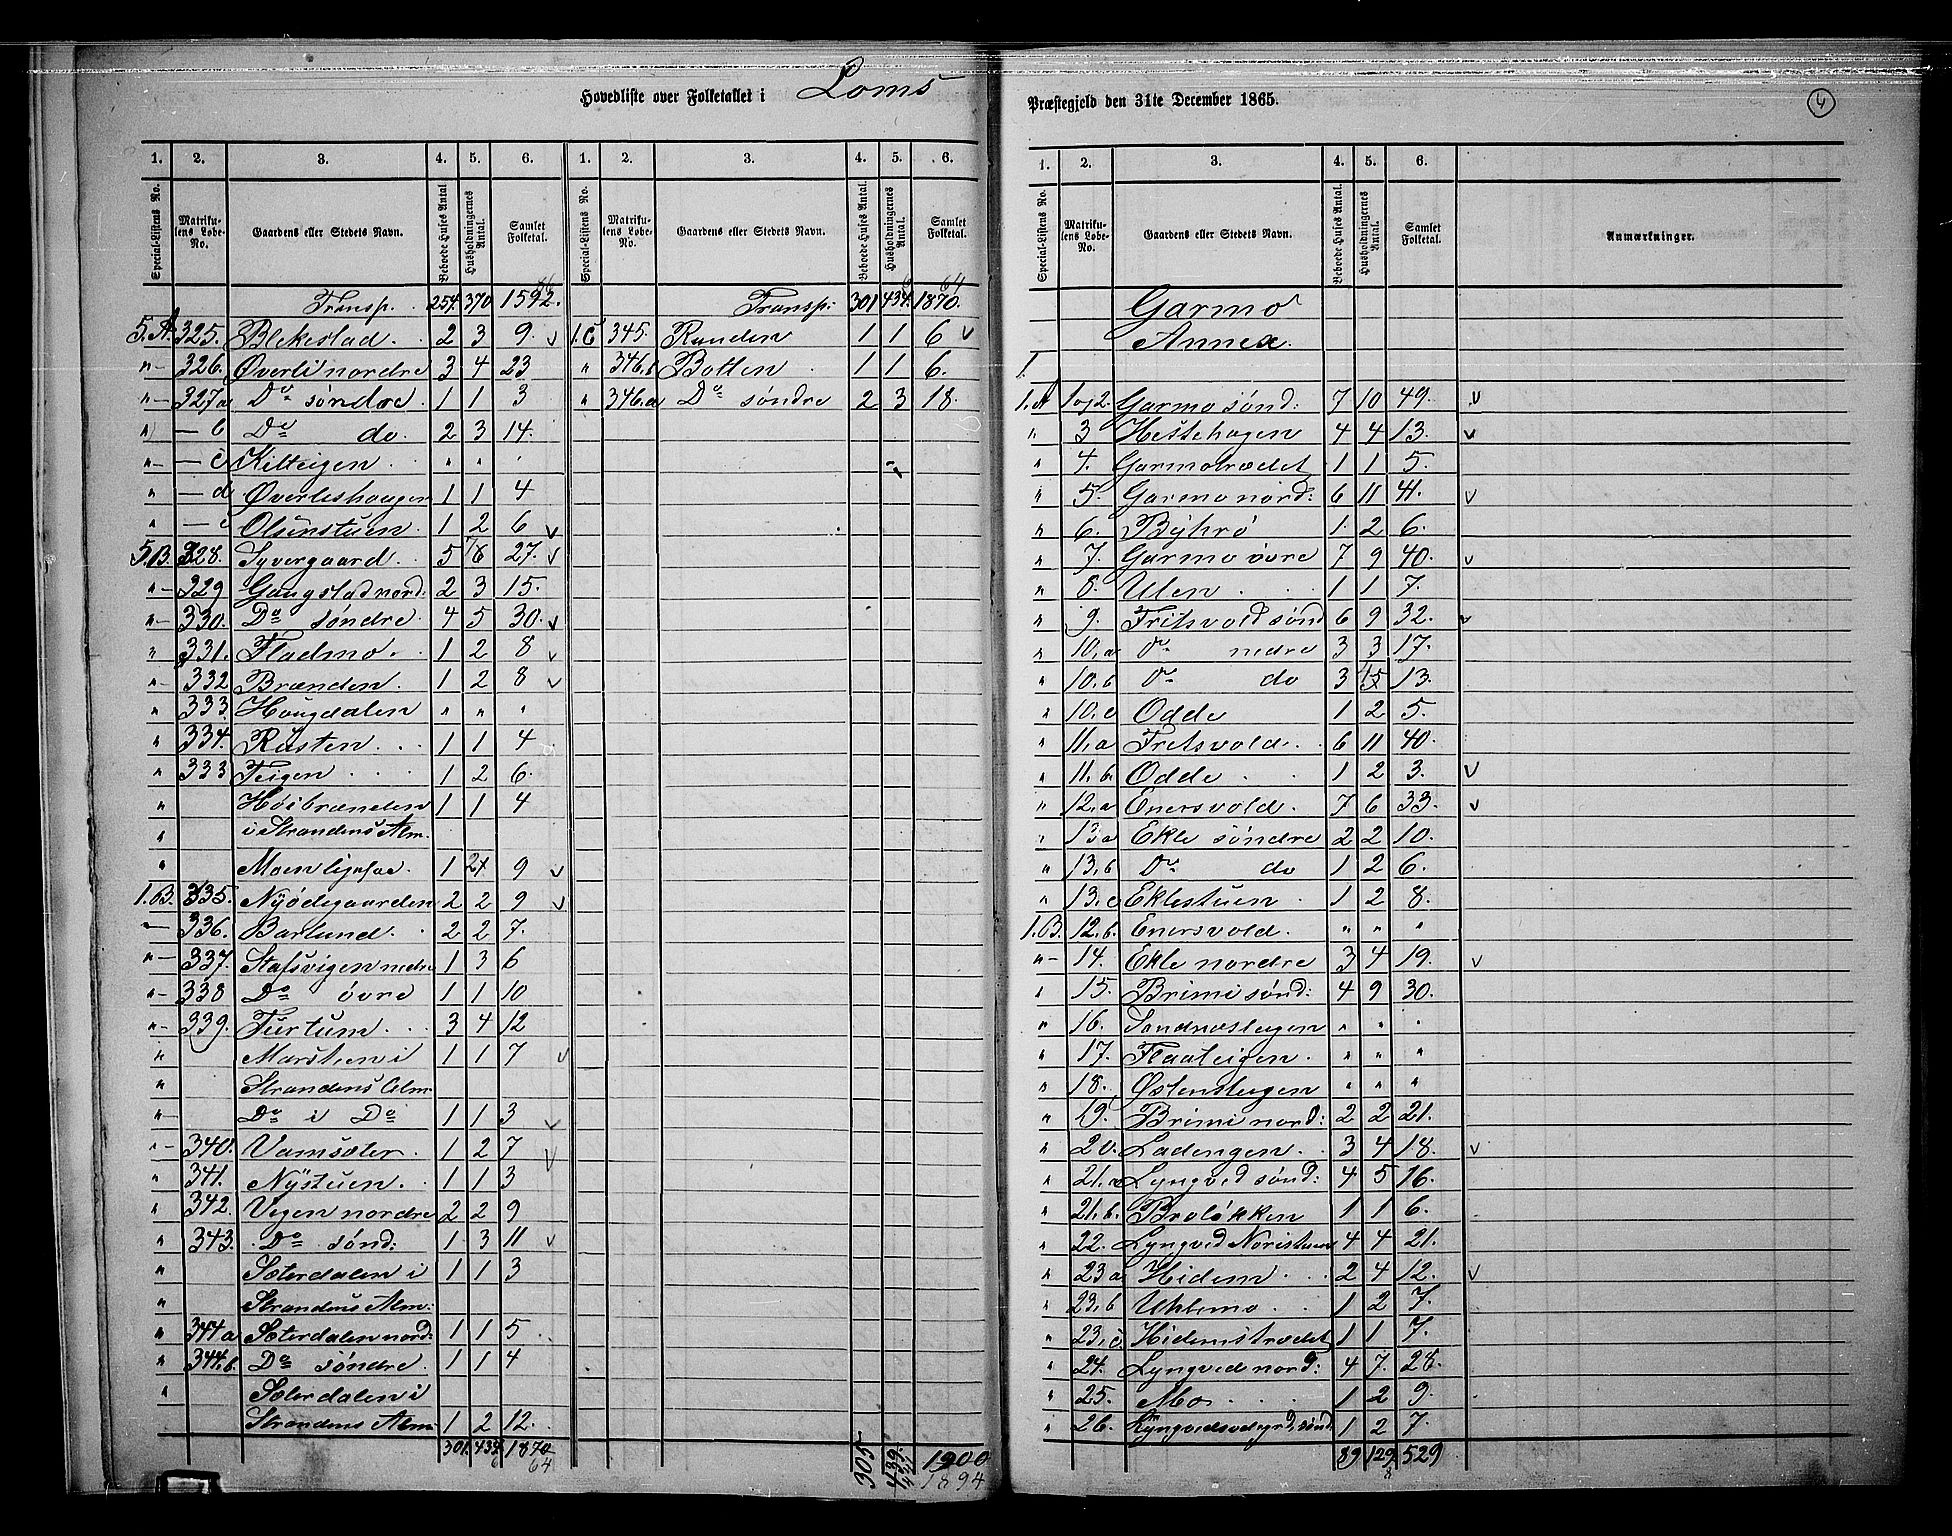 Hovedliste over Folketallet i Loms
1. 2. 3. 4. 5. 6. 1. 2. 3. 4. 5. 6.
Special-Listens No. Matrikulens Løbe-No. Gaardens eller Stedets Navn. Beboede Huses Antal. Husholdningernes Antal. Samlet Folketal. Special-Listens No. Matrikulens Løbe-No. Gaardens eller Stedets Navn. Beboede Huses Antal. Husholdningernes Antal. Samlet Folketal.
Transp. 254. 370 1592. Transp: 301 434. 1870.
5.A. 325. Blekestad. 2 3 9. v 1.C 345. Randen 1 1 6 v
"- 326. Øverli nordre 3 4 23 " 346.b Botten 1 1 6.
"- 327a Do søndre 1 1 3 " 346.a Do søndre 2 3 18.
" — b Do do. 2 3 14.
"- — c Kilteigen " " "
" — d Øverlishaugen 1 1 4
" — e Olsenstuen. 1 2 6 v
5.B. 328. Syvergaard. 5 8 27. v
"- 329 Gaugstad nord: 2 3 15.
"- 330. Do søndre. 4 5 30. v
" 331. Fladmo. 1 2 8 v
"- 332 Brænden. 1 2 8 v
" 333 Hougdalen " " "
" 334. Rusten. 1 1 4
" 333 Teigen 1 2 6.
" Høibrænden 1 1 4
" i Strandens Alm.
" Moen ligesaa. 1 2 9 v
1.B. 335. Nyødegaarden 2 2 9 v
"- 336. Barlund. 2 2 7.
"- 337. Stafsvigen nedre 1 3 6
"- 338 Do øvre 1 1 10
"- 339. Turtum. 3 4 12
" Marsteen i 1 1 7 v
" Strandens Alm
"- Do i Do 1 1 3 v
"- 340. Vamsæter. 1 2 7 v
" 341. Nystuen. 1 1 3
" 342. Vegen nordre 2 2 9
" 343. Do sønd: 1 3 11 v
" Sæterdalen i 1 1 3
" Strandens Alm:
" 344a Sæterdalen nord: 1 1 5
" 344.b. Do søndre. 1 1 4
" Sæterdalen i
Strandens Alm 1 2 12.
301. 434. 1870 305 439. 1900
6 64 1894
Præstegjeld den 31te December 1865. 4
1. 2. 3. 4. 5. 6.
Special-Listens No. Matrikulens Løbe-No. Gaardens eller Stedets Navn. Beboede Huses Antal. Husholdningernes Antal. Samlet Folketal. Anmærkninger.
Garmo
Annex.
1.
1.A 1og2. Garmo sønd: 7 10 49. v
" 3 Hestehagen 4 4 13. v
" 4. Garmotrædet 1 1 5.
" 5. Garmo nord: 6 11 41. v
" 6. Byhrø 1 2 6.
" 7. Garmo øvre 7 9 40. v
" 8. Ulen 1 1 7.
" 9. Fritsvold sønd 6 9 32. v
" 10,a Do nedre 3 3 17.
" 10,b Do do 3 5 13.
" 10,c Odde 1 2 5.
" 11,a Fretsvold. 6 11 40.
" 11,b. Odde 1 2 3. v
" 12,a Enersvold. 7 6 33. v
" 13a Ekle søndre 2 2 10.
" 13,b Do do 1 2 6.
" 13,c Eklestuen 1 2 8.
1.B. 12,b. Enersvold. " " "
"- 14. Ekle nordre 3 4 19. v
" 15. Brimi sønd: 4 9 30.
" 16. Sandnæslugen " " "
" 17. Flaateigen. " " "
" 18. Østenslugen " " "
" 19. Brimi nord: 2 2 21.
" 20. Ladengen. 3 4 18. v
" 21.a Lyngved sønd: 4 5 16.
" 21,b. Braløkken 1 1 6.
" 22. Lyngved Noristuen 4 4 21.
" 23a Hidem 2 4 12. v
" 23,b Uhlemo 1 2 7.
" 23,c. Hidemstrædet 1 1 7.
" 24. Lyngved nord: 4 7. 28.
" 25. Mo 1 2 9.
" 26. Lyngvedsødegrd, sønd 1 2 7.
89 129 529
8